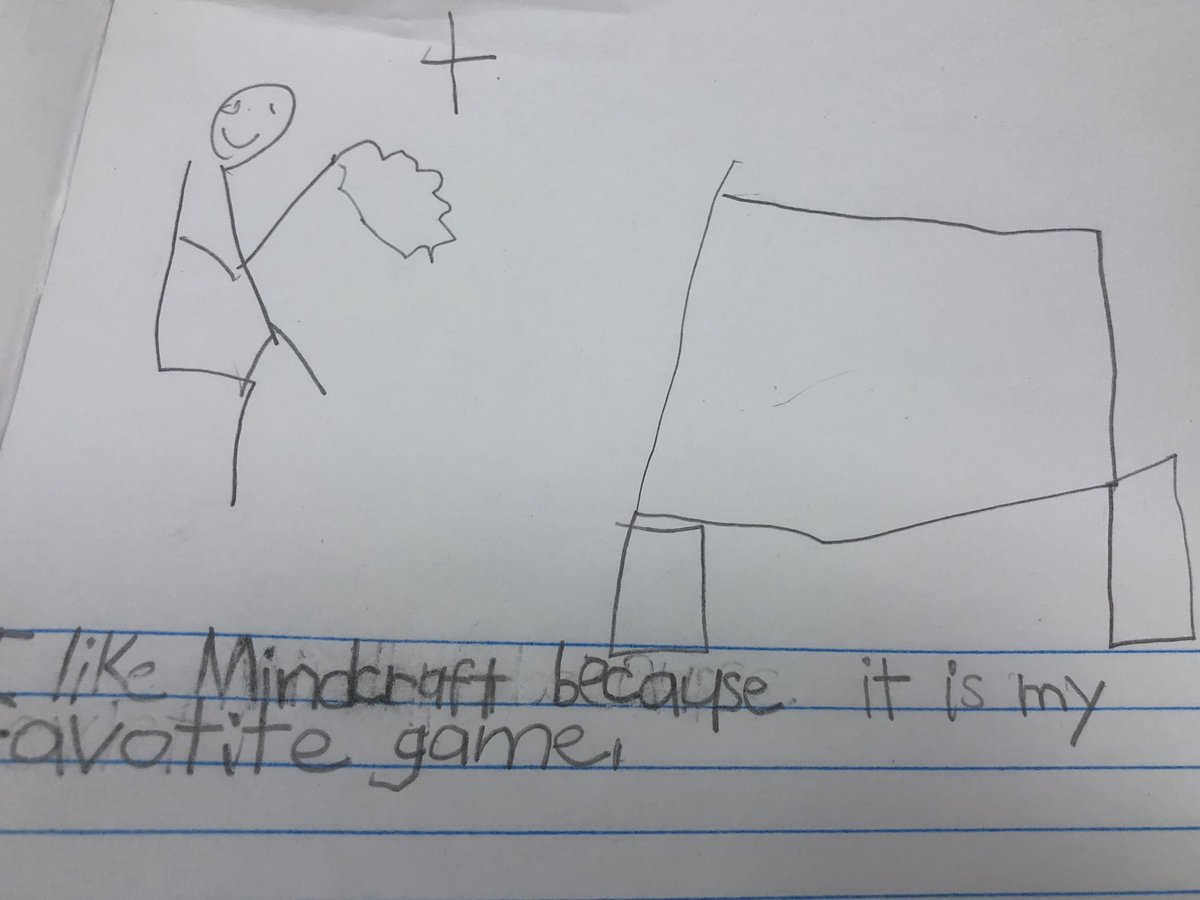 I like Mindcraft because it is my
favotite game.